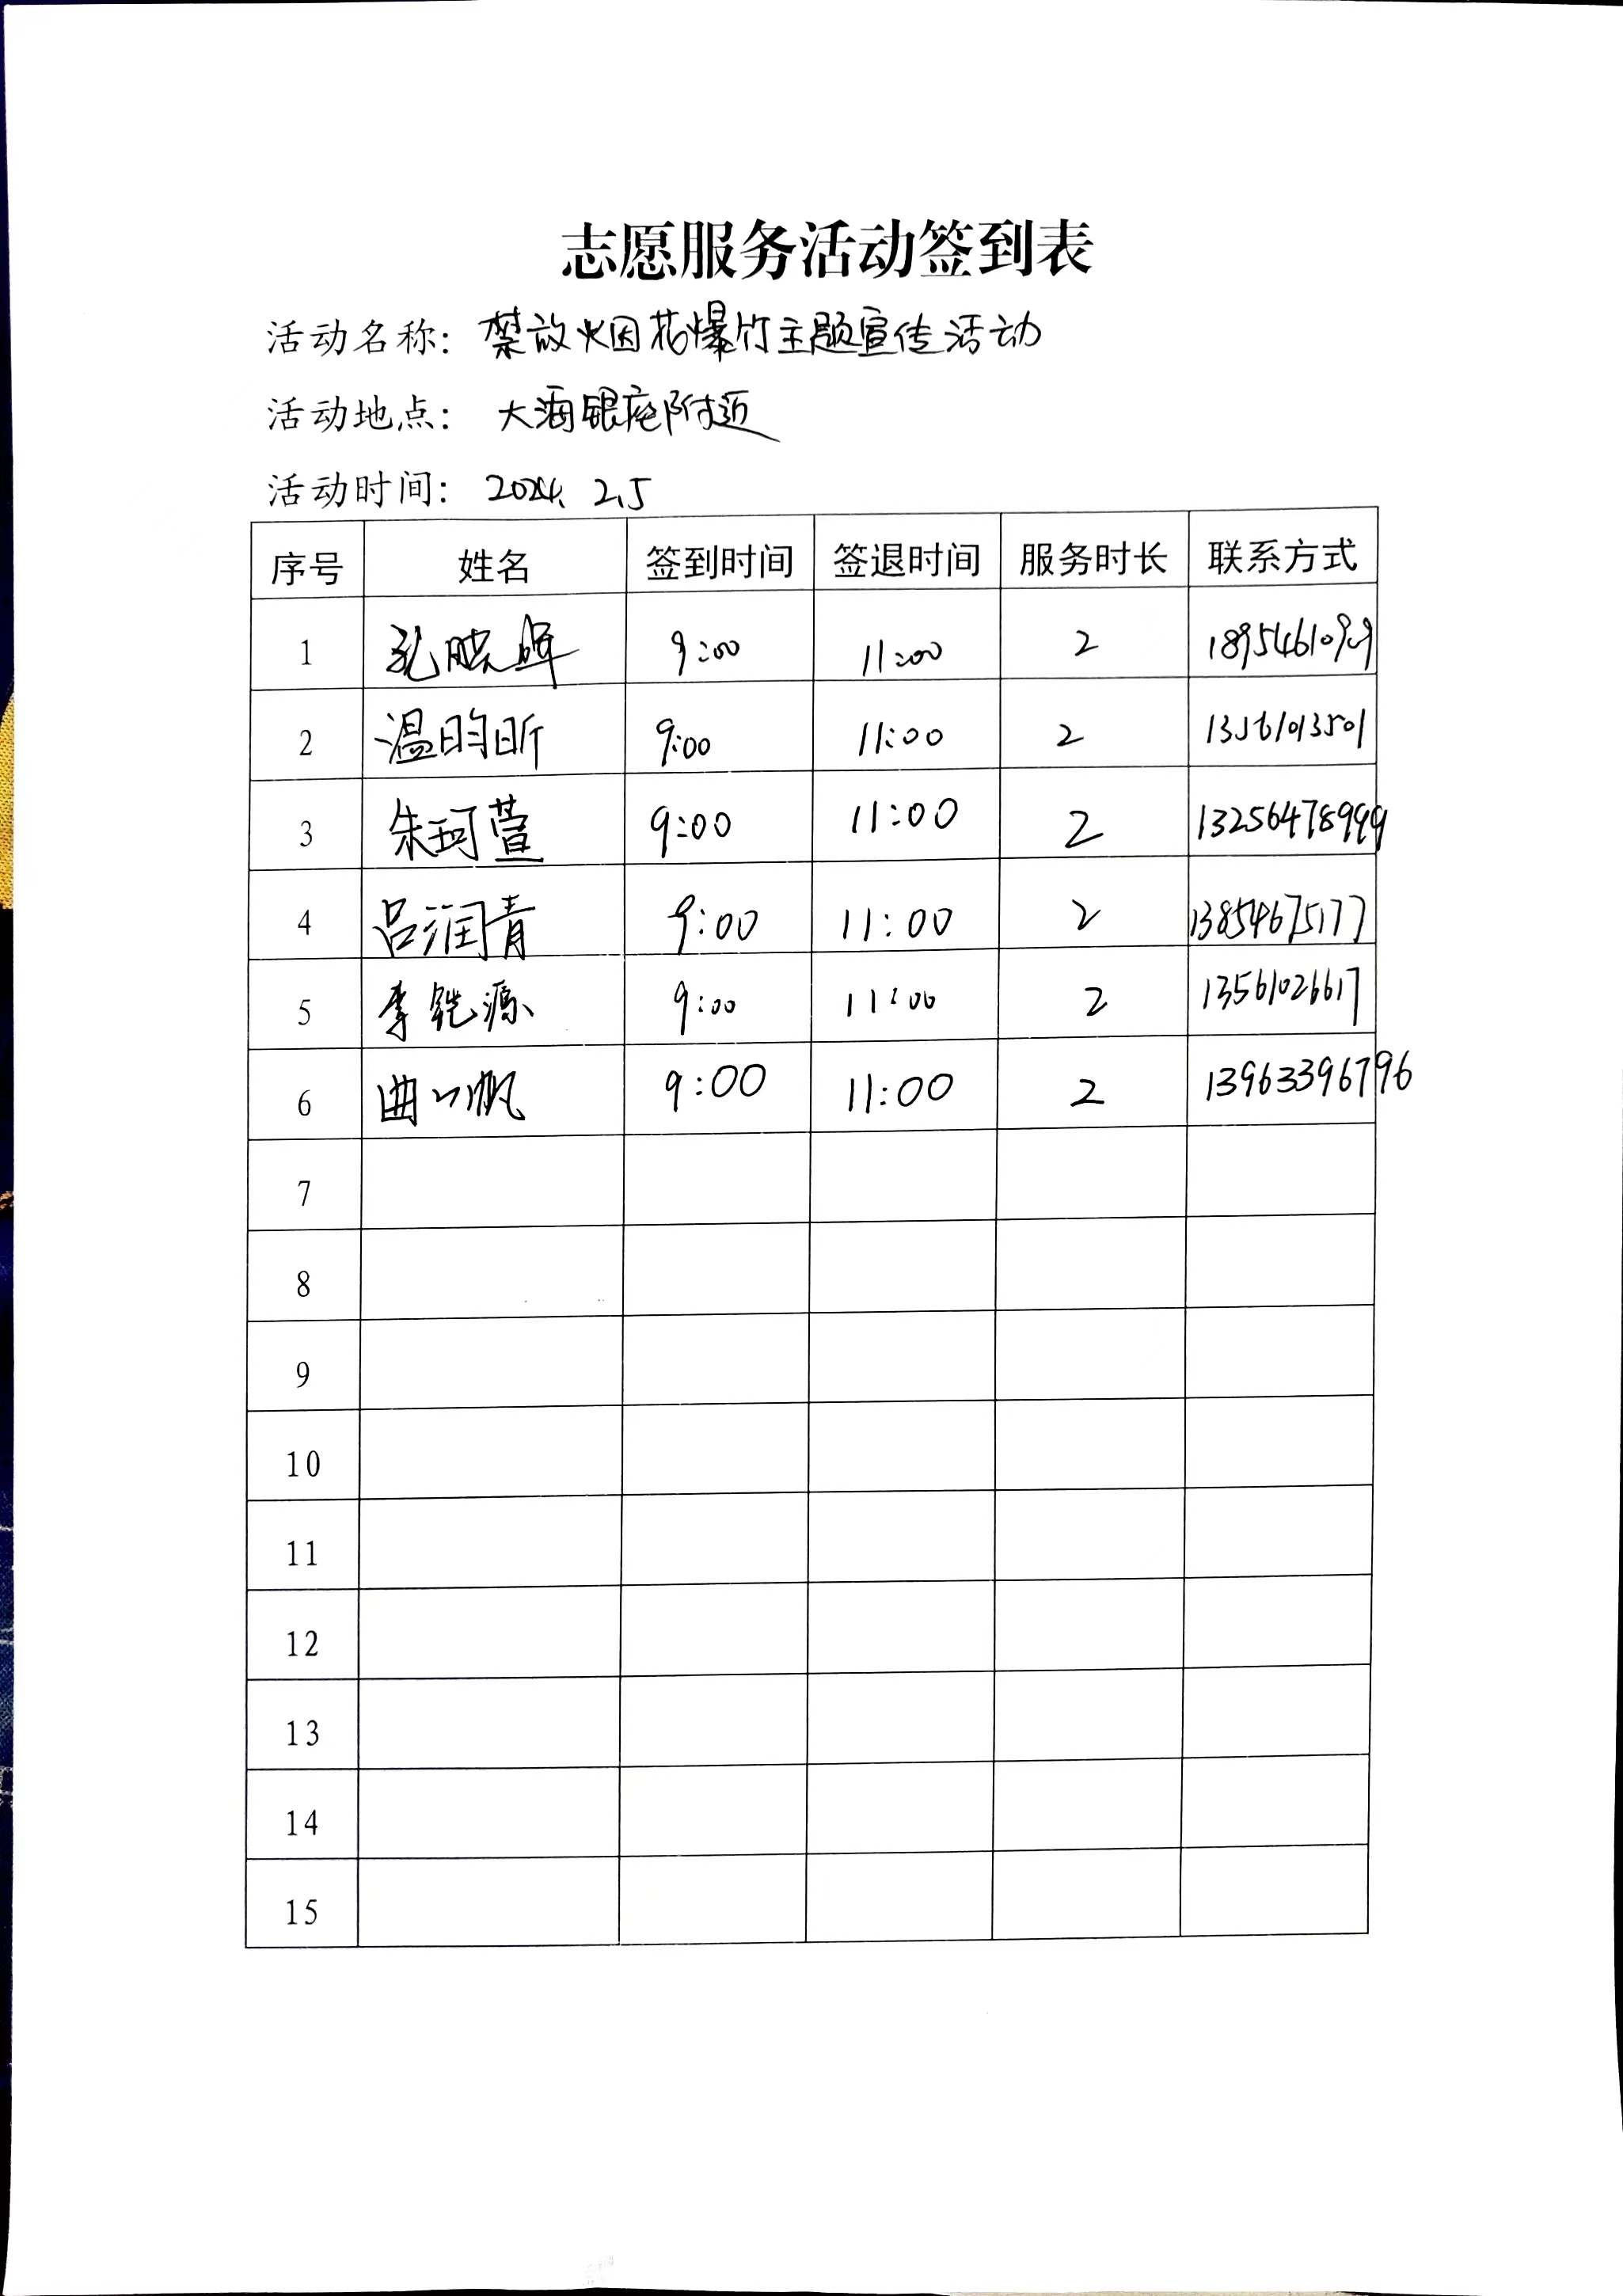 志愿服务活动签到表
活动名称: 禁放烟花爆竹主题宣传活动
活动地点: 大海银座附近
活动时间: 2024. 2.5
序号 姓名 签到时间 签退时间 服务时长 联系方式
1 孔 9:00 11:00 2
2 温昀昕 9:00 11:00 2 13561013501
3 朱珂萱 9:00 11:00 2 13256478999
4 吕润青 9:00 11:00 2 13854675177
5 李铠源 9:00 11:00 2 13561026617
6 曲一帆 9:00 11:00 2 13963396796
7
8
9
10
11
12
13
14
15